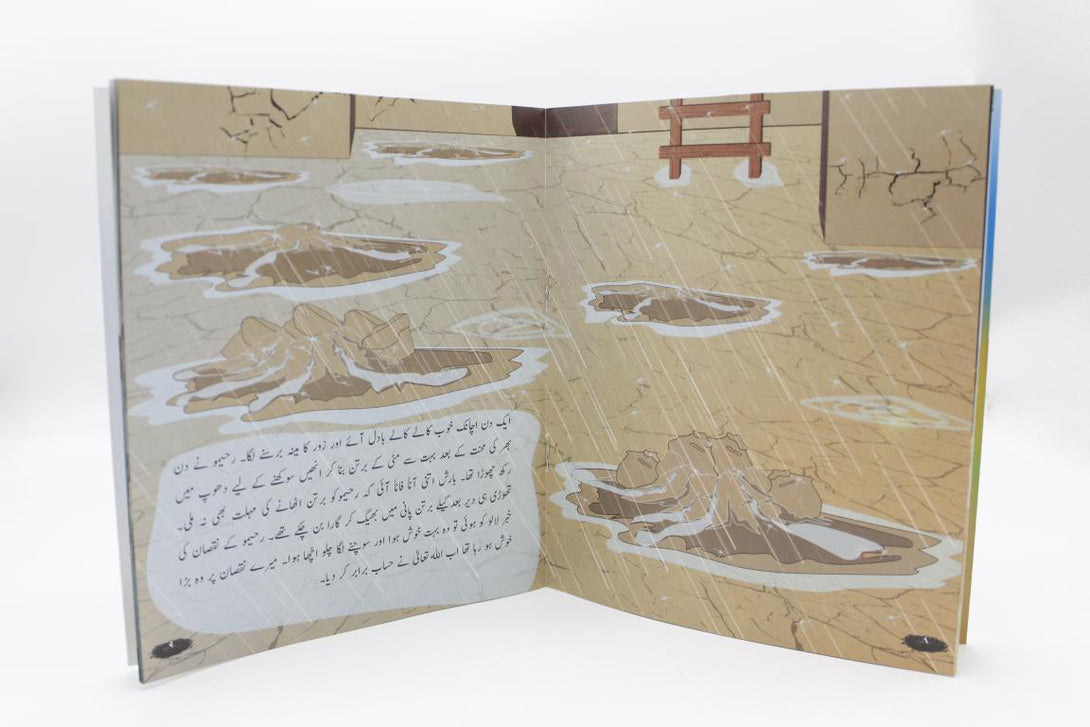 ایک دن اچانک خوب کالے کالے بادل آئے اور زور کا مینہ برسنے لگا۔ رحیمو نے دن
بھر کی محنت کے بعد بہت سے مٹی کے برتن بنا کر انھیں سوکھنے کے لیے دھوپ میں
رکھ چھوڑا تھا۔ بارش اتنی آنا فانا آئی کہ رحیمو کو برتن اٹھانے کی مہلت بھی نہ ملی۔
تھوڑی ہی دیر بعد گیلے برتن پانی میں بھیگ کر گارا بن چکے تھے۔ رحیمو کے نقصان کی
خبر لالو کو ہوئی تو وہ بہت خوش ہوا اور سوچنے لگا چلو اچھا ہوا۔ میرے نقصان پر وہ بڑا
خوش ہو رہا تھا اب اللہ تعالیٰ نے حساب برابر کر دیا۔